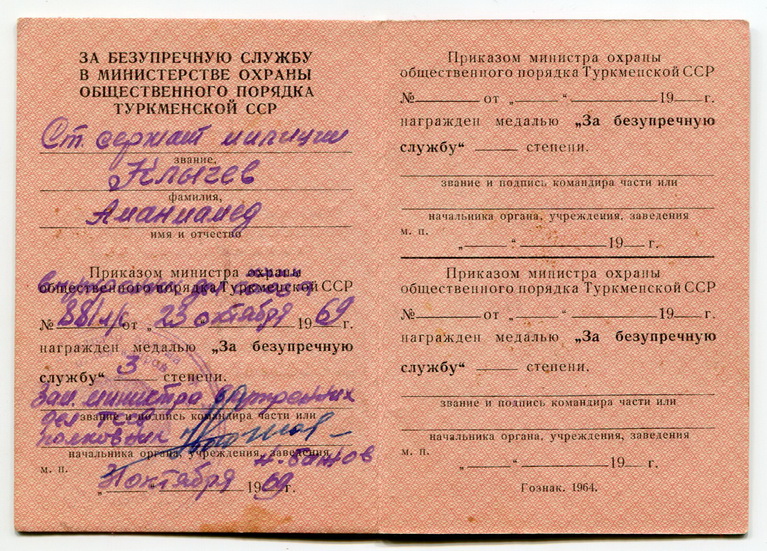 ЗА БЕЗУПРЕЧНУЮ СЛУЖБУ
В МИНИСТЕРСТВЕ ОХРАНЫ
ОБЩЕСТВЕННОГО ПОРЯДКА
ТУРКМЕНСКОЙ ССР
Ст. сержант милиции
звание,
Клычев
фамилия,
Аманмамед
имя и отчество
Приказом министра охраны
внутренних дел
общественного порядка Туркменской ССР
№ 88 л/с от „ 23 октября 1969 г.
награжден медалью „За безупречную
службу“ 3 степени.
Зам. министра внутренних
дел ТССР
звание и подпись командира части или
полковник
начальника органа, учреждения, заведения
м. п.
октября 1969 г.
Приказом министра охраны
общественного порядка Туркменской ССР
№ от „ “ 19 г.
награжден медалью „За безупречную
службу“ степени.
звание и подпись командира части или
начальника органа, учреждения, заведения
м. п.
„ “ 19 г.
Приказом министра охраны
общественного порядка Туркменской ССР
№ от „ “ 19 г.
награжден медалью „За безупречную
службу“ степени.
звание и подпись командира части или
начальника органа, учреждения, заведения
м. п.
„ “ 19 г.
Гознак. 1964.